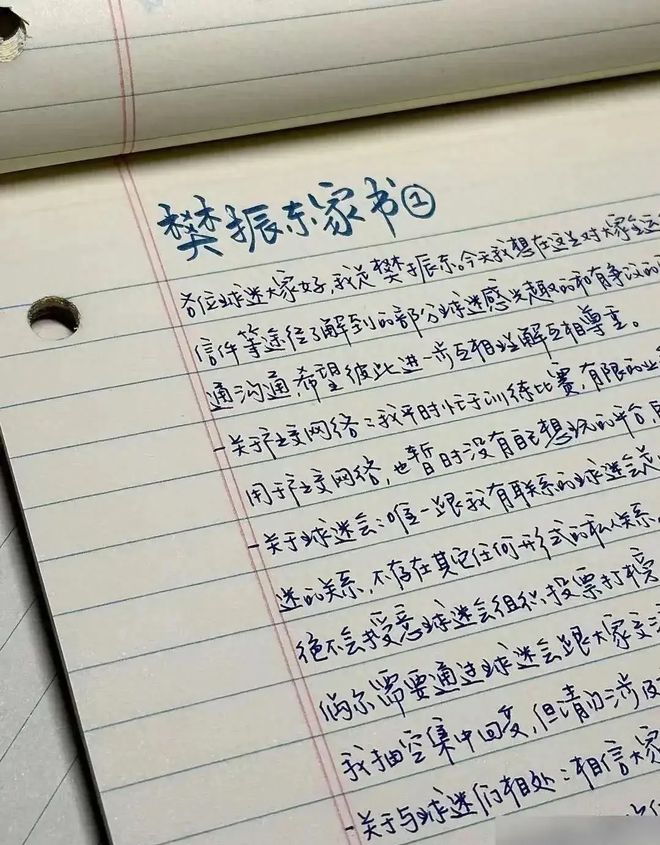 樊振东家书①
各位球迷大家好,我是樊振东。今天我想在这里对大家
信件等途径了解到的部分球迷感兴趣的和有争议的
通沟通,希望彼此进一步互相理解互相尊重。
-关于社交网络:我平时忙于训练比赛,有限的业
用于社交网络,也暂时没有自己想玩的平台,
-关于球迷会:唯一跟我有联系的球迷会
迷的关系,不存在其它任何形式的私人关系。
绝不会授意球迷会组织投票打榜
偶尔需要通过球迷会跟大家交
我抽空集中回复,但请勿涉及
-关于与球迷们相处:相信大家